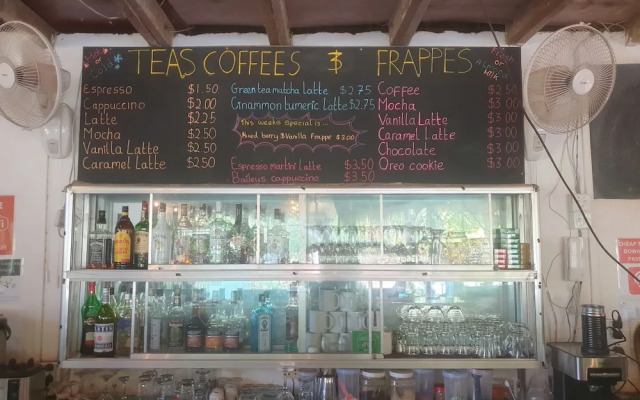 TEAS COFFEES $ FRAPPES
Hot or Cold
Espresso $1.50
Cappuccino $2.00
Latte $2.25
Mocha $2.50
Vanilla Latte $2.50
Caramel Latte $2.50
Green tea matcha latte $2.75
Cinnamon tumeric Latte $2.75
This weeks Special is...
Mixed berry & Vanilla Frappe $3.00
Espresso martini Latte $3.50
Baileys cappuccino $3.50
Coffee $2.50
Mocha $3.00
Vanilla Latte $3.00
Caramel Latte $3.00
Chocolate $3.00
Oreo cookie $3.00